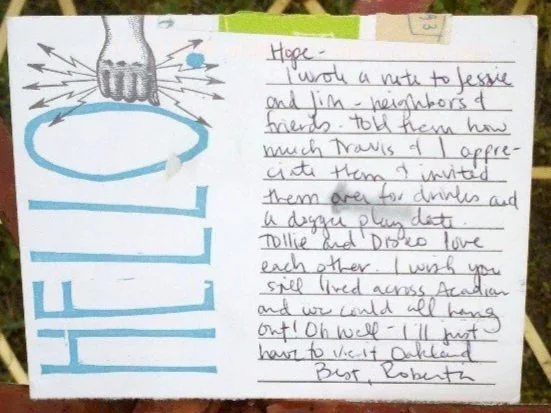 HELLO
93
Hope -
I wrote a note to Jessie
and Jim - neighbors &
friends. Told them how
much Travis & I appre-
ciate them & invited
them over for drinks and
a doggie play date.
Tollie and Disko love
each other. I wish you
still lived across Acadian
and we could all hang
out! Oh well - I'll just
have to visit Oakland
Best,